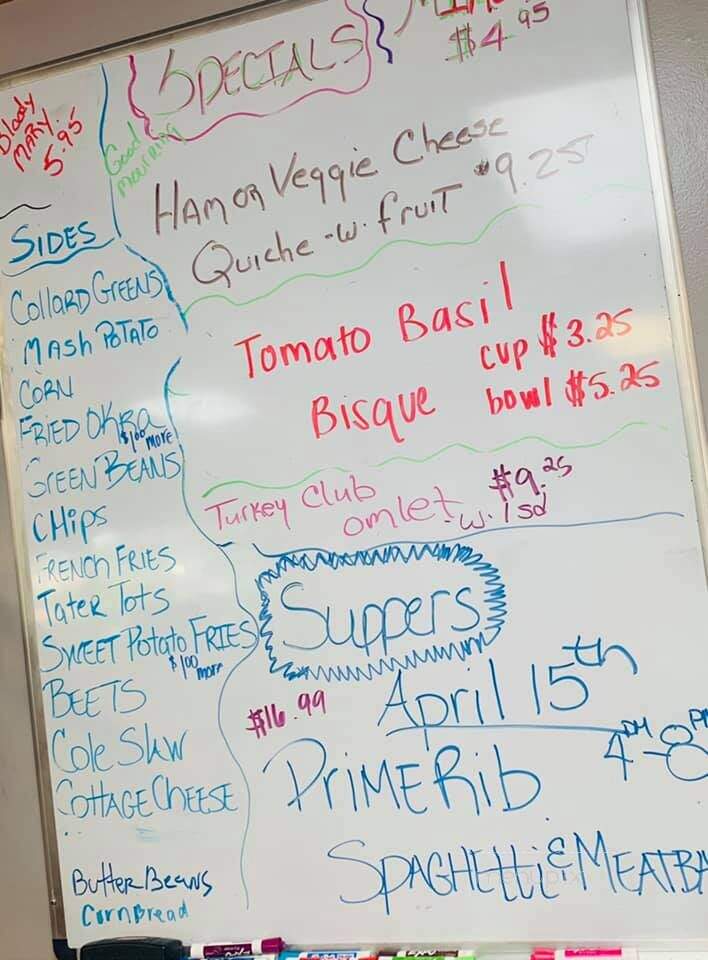 Bloody
MARY
5.95
SIDES
COLLARD GREENS
MASH POTATO
CORN
FRIED OKRA
$1.00 more
GREEN BEANS
CHIPS
FRENCH FRIES
TATER TOTS
SWEET POTATO FRIES
$1.00 more
BEETS
Cole Slaw
COTTAGE CHEESE
Butter Beans
Cornbread
SPECIALS
$4.95
Good
mourning
HAM OR Veggie Cheese
Quiche -w- fruit $9.25
Tomato Basil
Bisque
cup $3.25
bowl $5.25
Turkey Club
omlet -w- 1 sd
$9.25
Suppers
April 15th
$16.99
4PM-8PM
PRIME Rib
SPAGHETTI & MEATBA